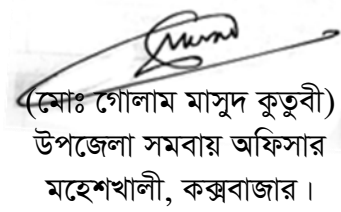 (মোঃ গোলাম মাসুদ কুতুবী)
উপজেলা সমবায় অফিসার
মহেশখালী, কক্সবাজার।